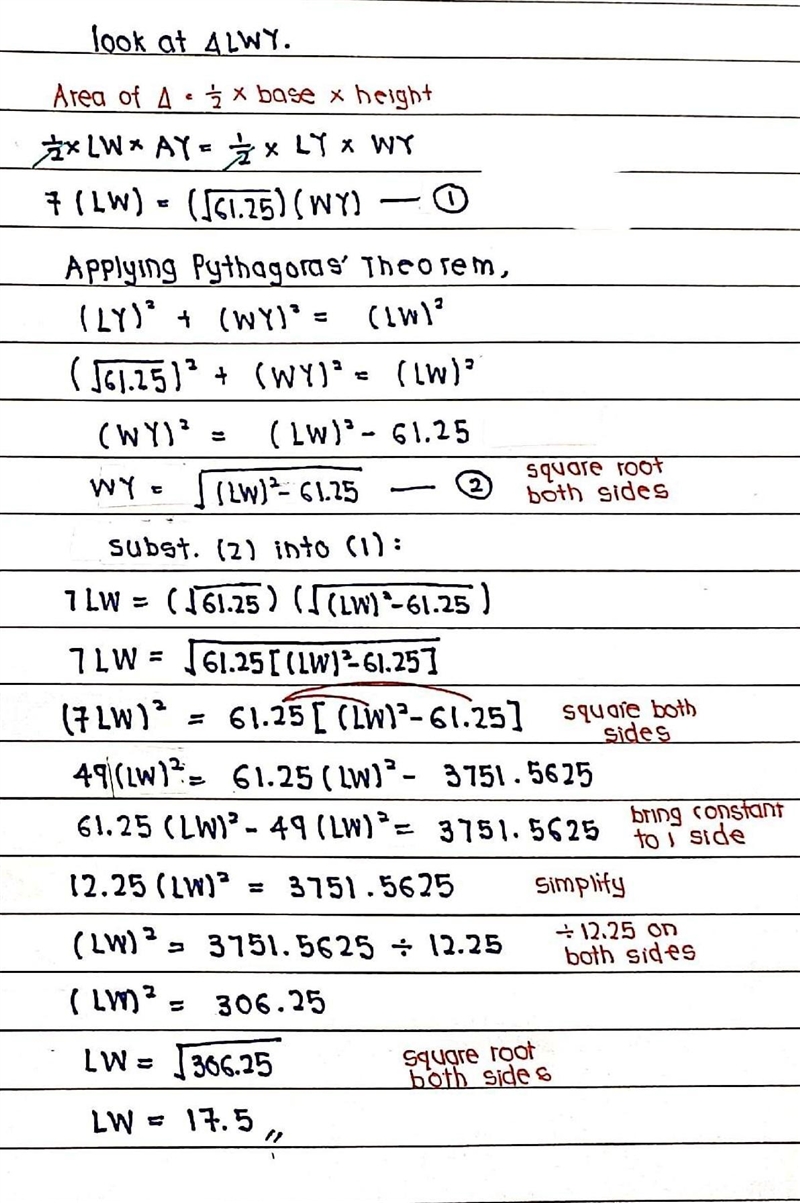 look at ΔLWY.
Area of Δ = ½ × base × height
½ × LW × AY = ½ × LY × WY
7 (LW) = (√61.25)(WY) — ①
Applying Pythagoras' Theorem,
(LY)² + (WY)² = (LW)²
(√61.25)² + (WY)² = (LW)²
(WY)² = (LW)² - 61.25
WY = √(LW)² - 61.25 — ② square root both sides
subst. (2) into (1):
7LW = (√61.25) (√(LW)² - 61.25)
7LW = √61.25[(LW)² - 61.25]
(7LW)² = 61.25[(LW)² - 61.25] square both sides
49(LW)² = 61.25(LW)² - 3751.5625
61.25(LW)² - 49(LW)² = 3751.5625 bring constant to 1 side
12.25(LW)² = 3751.5625 simplify
(LW)² = 3751.5625 ÷ 12.25 ÷12.25 on both sides
(LW)² = 306.25
LW = √306.25 square root both sides
LW = 17.5 //